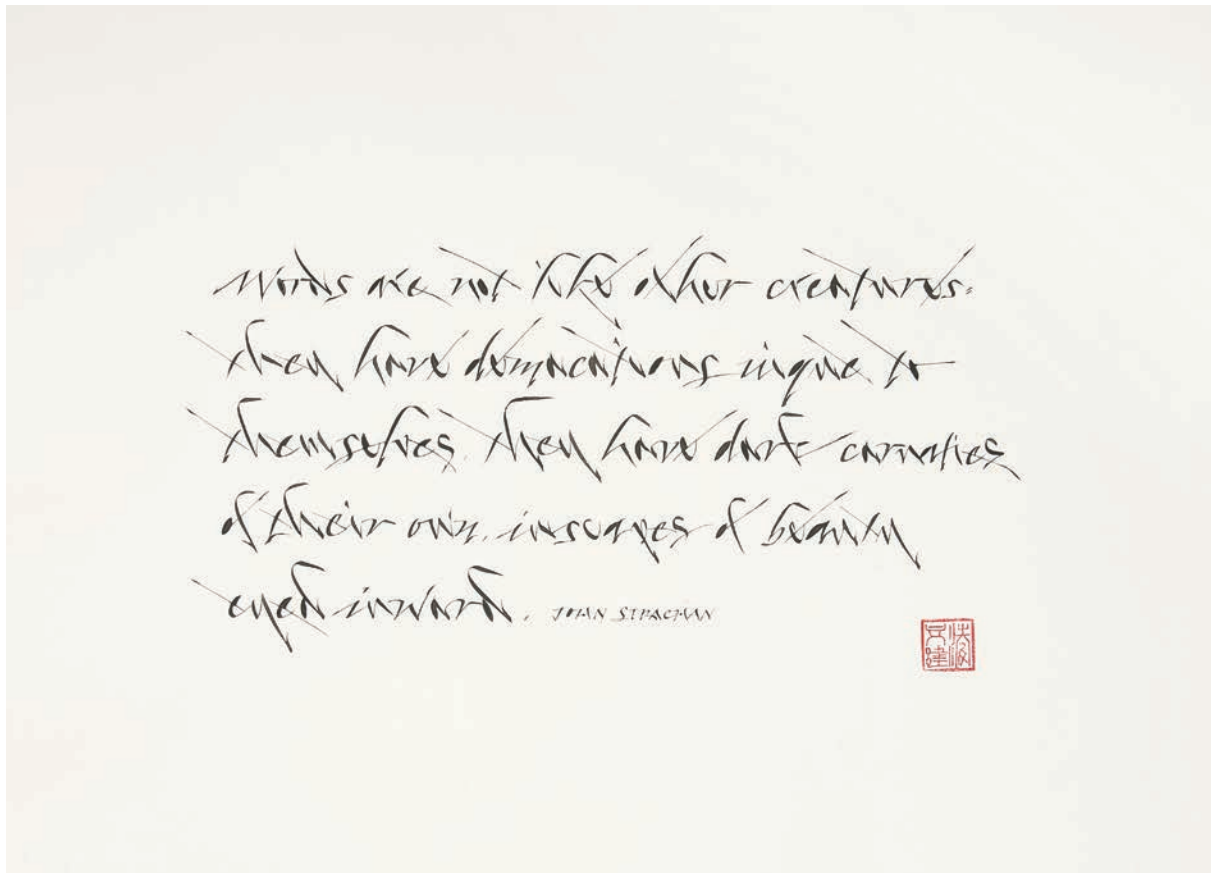 Words are not like other creatures:
they have unique to
themselves. They have dark
of their own, inscapes of beauty
eyed inward. JOHN STRACHAN